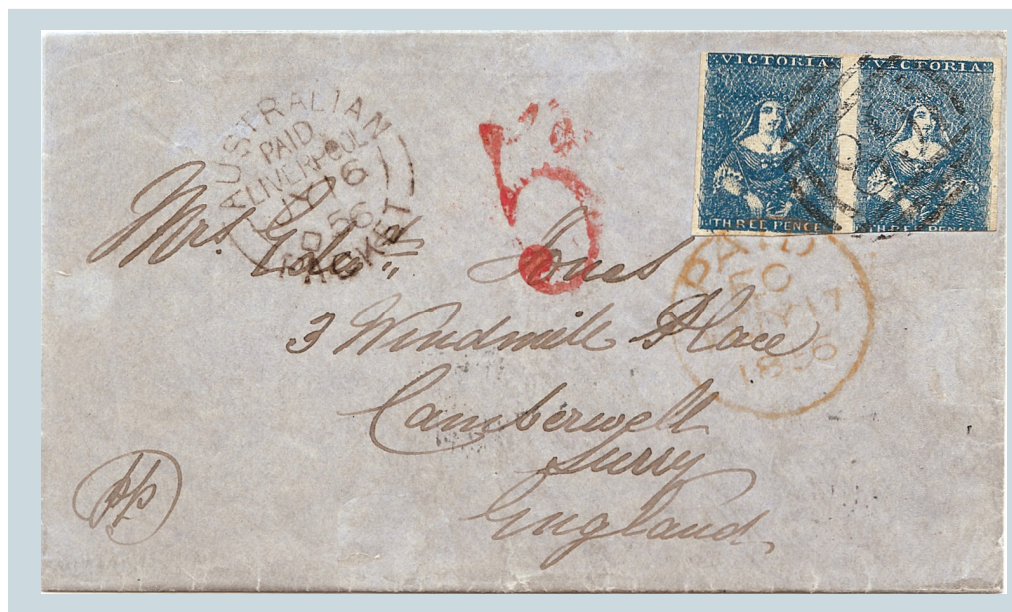 VICTORIA
THREE PENCE
VICTORIA
THREE PENCE
AUSTRALIAN
PAID
LIVERPOOL
JY 16
56
PACKET
5
PAID
17
1856
Mrs Jones
3 Windmill Place
Camberwell
Surry
England
pp